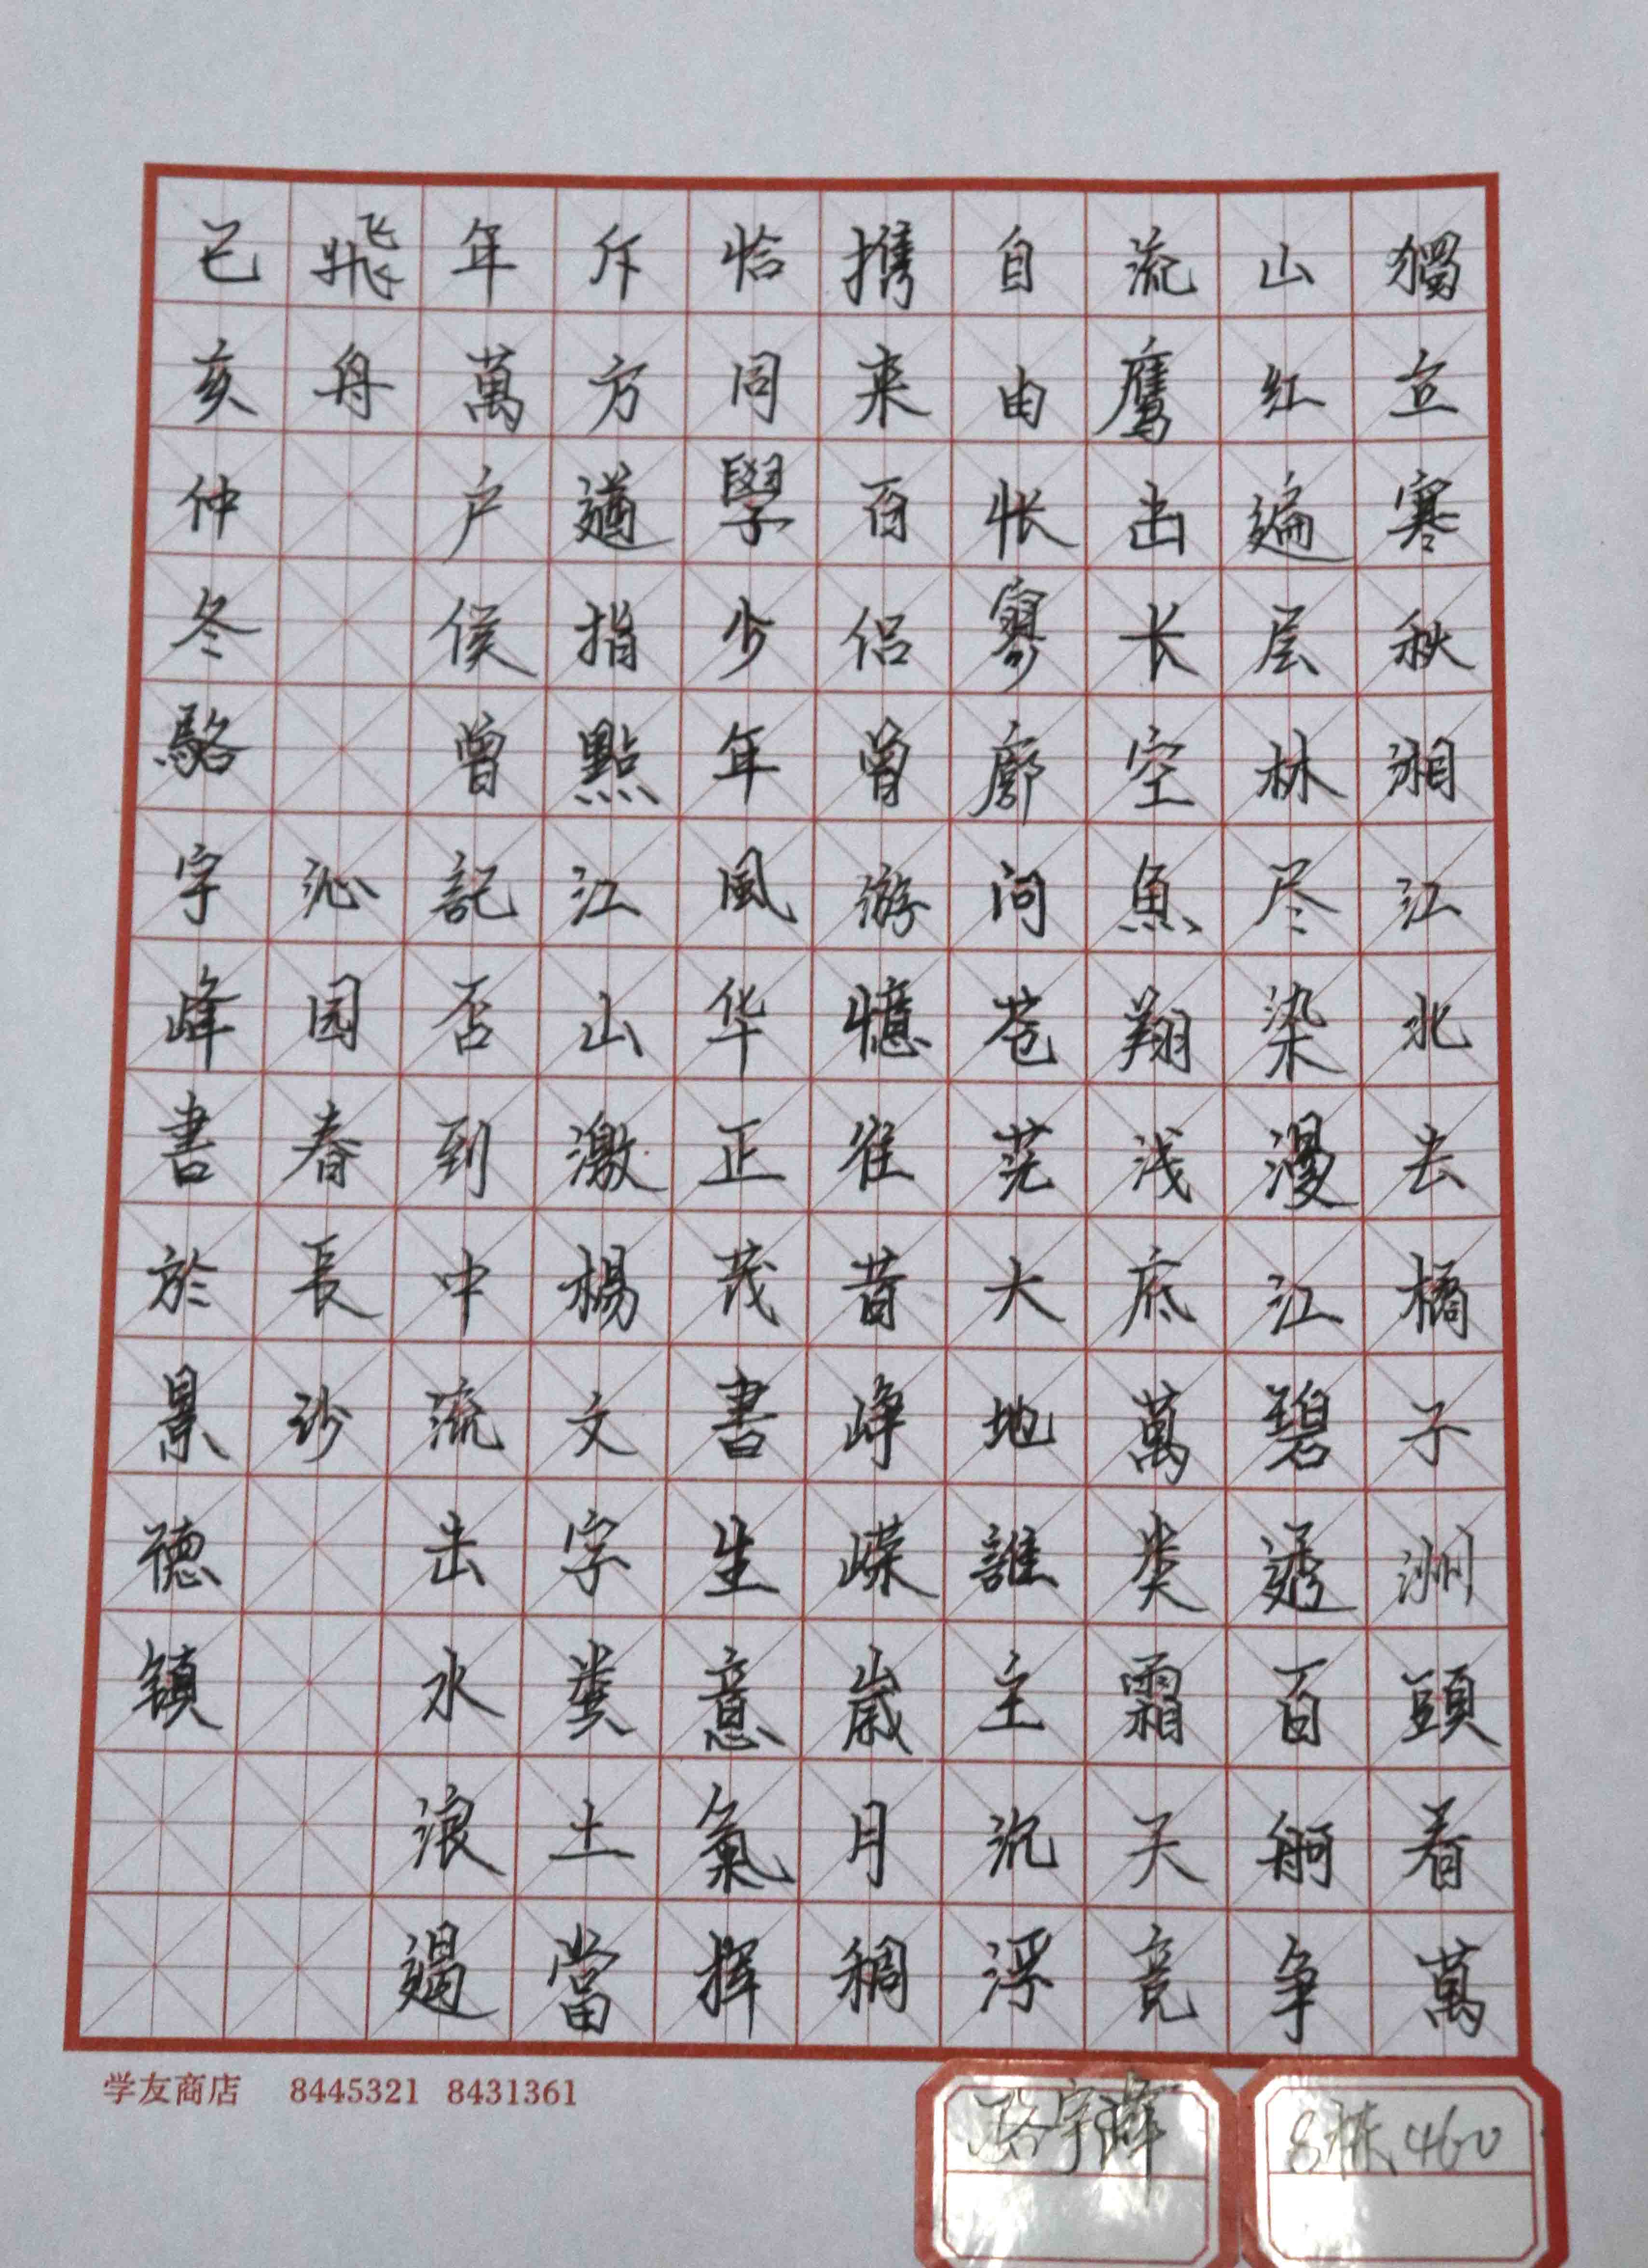 獨立寒秋湘江北去橘子洲頭看萬
山红遍层林尽染漫江碧透百舸争
流鹰击长空魚翔浅底萬类霜天竞
自由怅寥廓问苍茫大地誰主沉浮
携来百侣曾游憶往昔峥嵘歲月稠
恰同學少年風华正茂書生意氣挥
斥方遒指點江山激楊文字粪土當
年萬户侯曾記否到中流击水浪遏
飛舟 沁园春長沙
己亥仲冬駱宇峰書於景德镇
学友商店 8445321 8431361
骆宇峰
8栋460